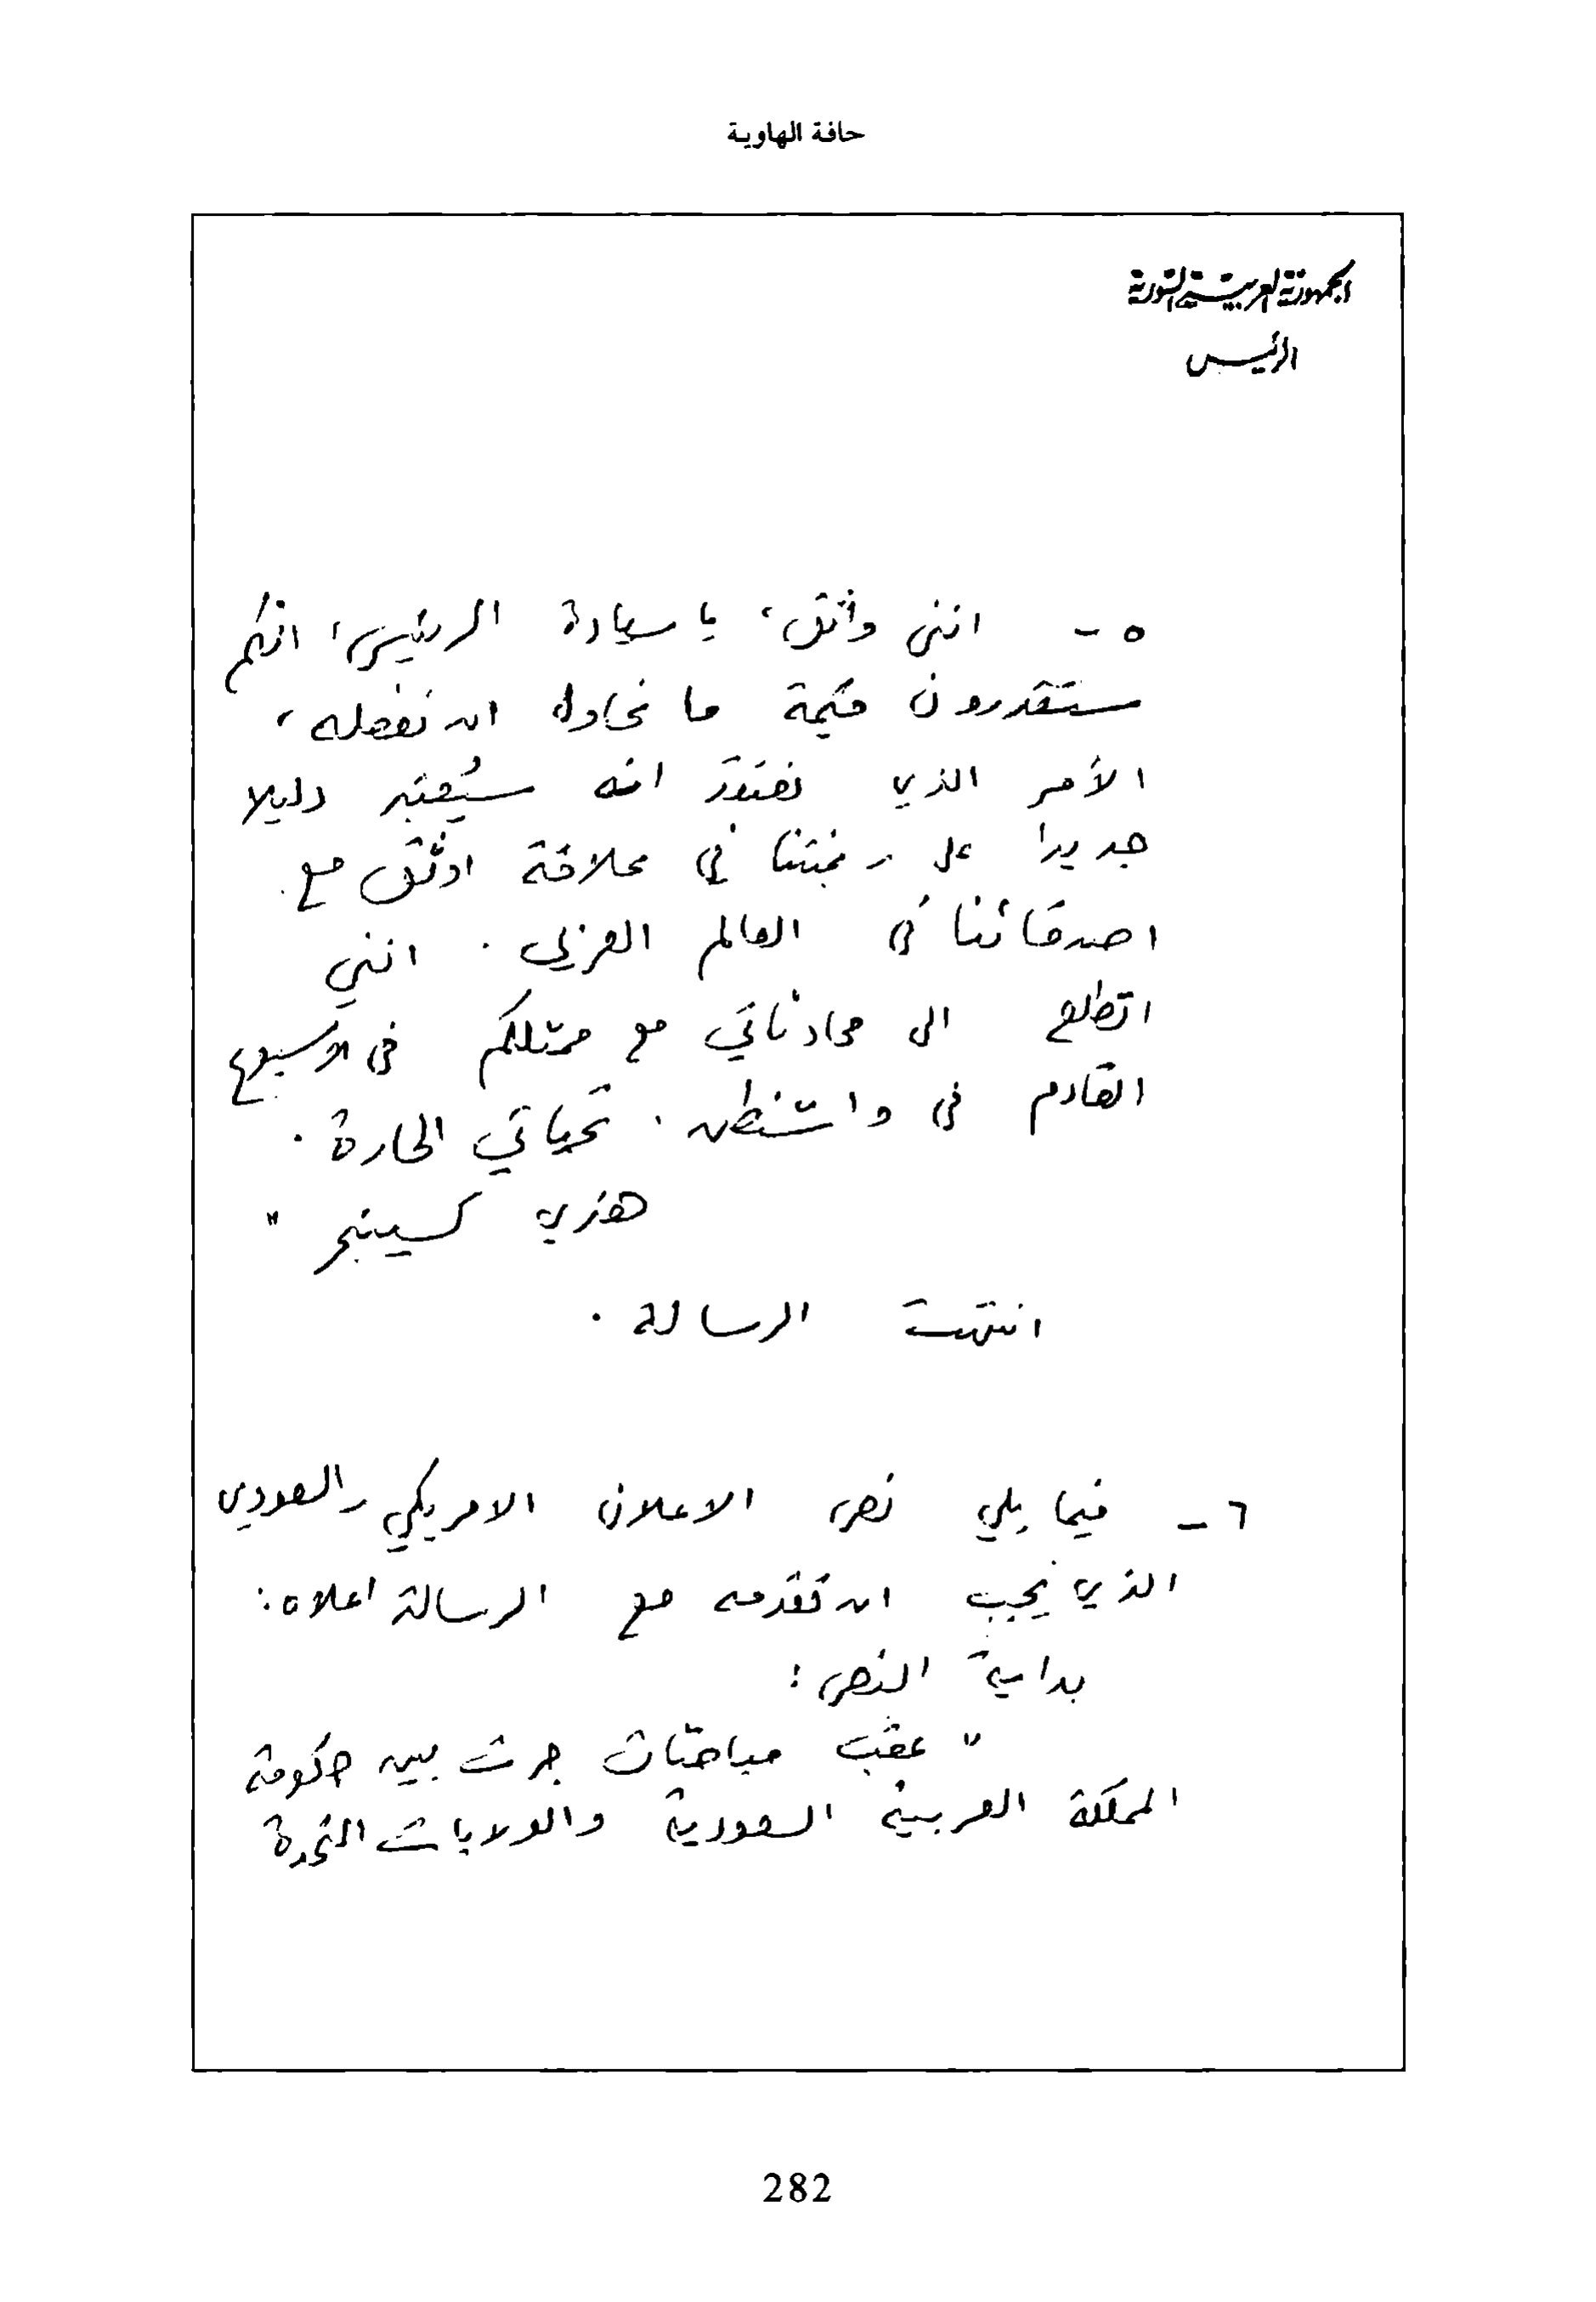 حافة الهاوية
الجمهورية العربية السورية
الرئيس
٥ - انني واثق، يا سيادة الرئيس، انكم
ستقدرون قيمة ما نحاول ان نفعله،
الأمر الذي نعتقد انه سيُعتبر دليلا
جديدا على رغبتنا في علاقة اوثق مع
اصدقائنا في العالم العربي. انني
اتطلع الى محادثاتي مع ممثلكم في الاسبوع
القادم في واشنطن. تحياتي الحارة.
هنري كسينجر "
انتهت الرسالة.
٦ - فيما يلي نص الاعلان الامريكي والسعودي
الذي يجب ان تقدمه مع الرسالة اعلاه:
بداية النص:
" عقب مباحثات جرت بين حكومة
المملكة العربية السعودية والولايات المتحدة
282